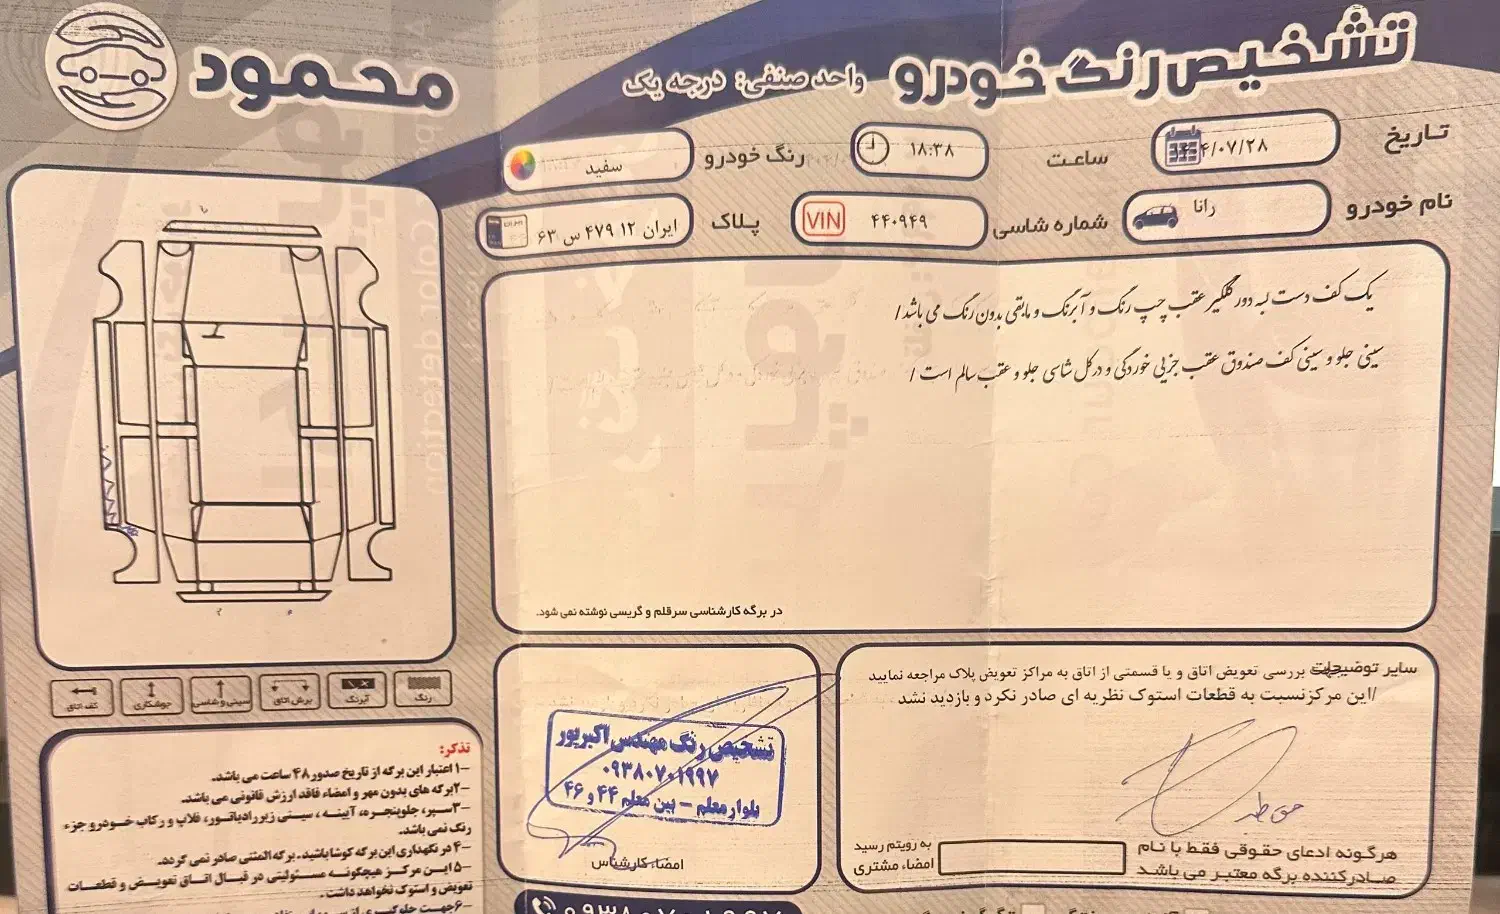 تشخیص رنگ خودرو
واحد صنفی: درجه یک
محمود
تاریخ
۱۴۰۴/۰۷/۲۸
ساعت
۱۸:۳۸
رنگ خودرو
سفید
نام خودرو
رانا
شماره شاسی
۴۴۰۹۴۹
VIN
پلاک
ایران ۱۲ ۴۷۹ س ۶۳
یک کف دست لبه دور گلگیر عقب چپ رنگ و آبرنگ و مابقی بدون رنگ می باشد /
سینی جلو و سینی کف صندوق عقب جزیی خوردگی و درکل شاسی جلو و عقب سالم است /
در برگه کارشناسی سرقلم و گریسی نوشته نمی شود.
رنگ
آبرنگ
برش اتاق
سینی و شاسی
جوشکاری
کف اتاق
تذکر:
۱- اعتبار این برگه از تاریخ صدور ۴۸ ساعت می باشد.
۲- برگه های بدون مهر و امضاء فاقد ارزش قانونی می باشد.
۳- سپر، جلوپنجره، آیینه، سینی زیر رادیاتور، قلاپ و رکاب خودرو جزء
رنگ نمی باشد.
۴- در نگهداری این برگه کوشا باشید. برگه المثنی صادر نمی گردد.
۵- این مرکز هیچگونه مسئولیتی در قبال اتاق تعویض و قطعات
تعویض و استوک نخواهد داشت.
سایر توضیحات
بررسی تعویض اتاق و یا قسمتی از اتاق به مراکز تعویض پلاک مراجعه نمایید
/این مرکز نسبت به قطعات استوک نظریه ای صادر نکرد و بازدید نشد
هرگونه ادعای حقوقی فقط با نام
صادرکننده برگه معتبر می باشد
به رویتم رسید
امضاء مشتری
تشخیص رنگ مهندس اکبرپور
۰۹۳۸۰۷۰۱۹۹۷
بلوار معلم - بین معلم ۴۴ و ۴۶
امضاء کارشناس